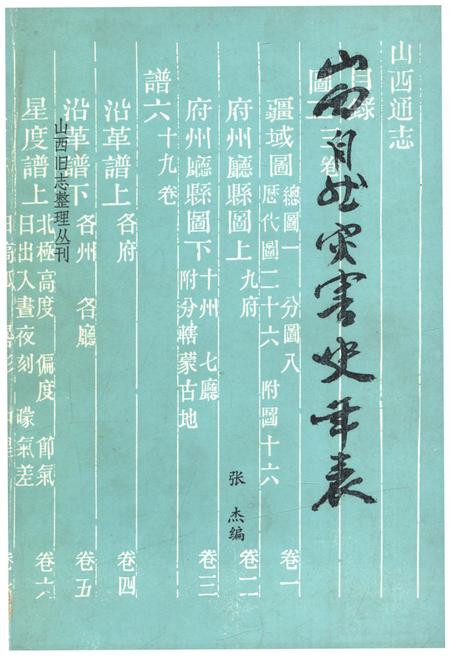 山西自然灾害史年表
张 杰编
山西旧志整理丛刊
山西通志
目錄
圖 三卷
疆域圖 總圖一 分圖八 歷代圖二十六 附圖十六 卷一
府州廳縣圖上 九府 卷二
府州廳縣圖下 十州 七廳 附分轄蒙古地 卷三
譜六 十九卷
沿革譜上 各府 卷四
沿革譜下 各州 各廳 卷五
星度譜上 北極高度 偏度 節氣 日出入晝夜刻 矇氣差 卷六